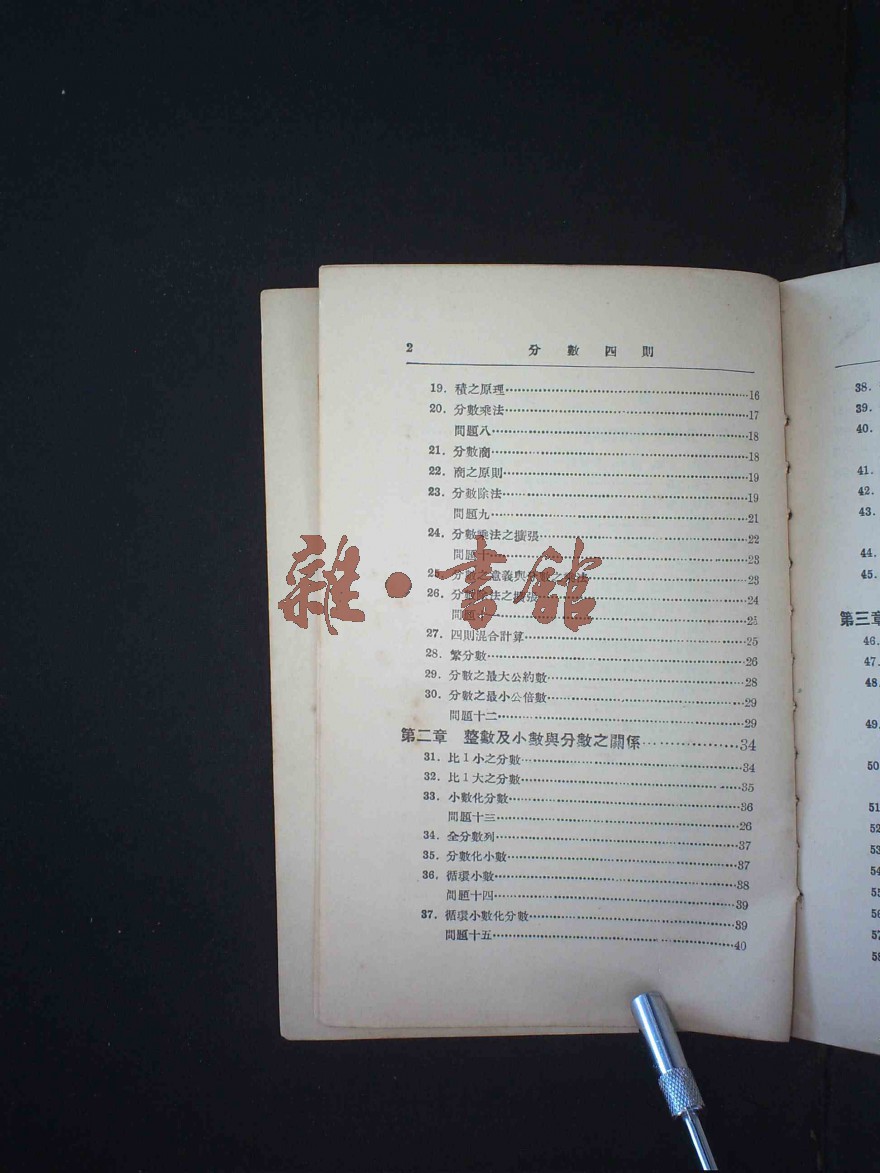 2 分數四則
19. 積之原理 16
20. 分數乘法 17
問題八 18
21. 分數商 18
22. 商之原則 19
23. 分數除法 19
問題九 21
24. 分數乘法之擴張 22
問題十 23
25. 分數之意義與分數之乘法 23
26. 分數除法之擴張 24
問題十一 25
27. 四則混合計算 25
28. 繁分數 26
29. 分數之最大公約數 28
30. 分數之最小公倍數 29
問題十二 29
第二章 整數及小數與分數之關係 34
31. 比1小之分數 34
32. 比1大之分數 35
33. 小數化分數 36
問題十三 26
34. 全分數列 37
35. 分數化小數 37
36. 循環小數 38
問題十四 39
37. 循環小數化分數 39
問題十五 40
雜·書館
38.
39.
40.
41.
42.
43.
44.
45.
第三章
46.
47.
48.
49.
50.
51
52
53
54
55
56
57
58